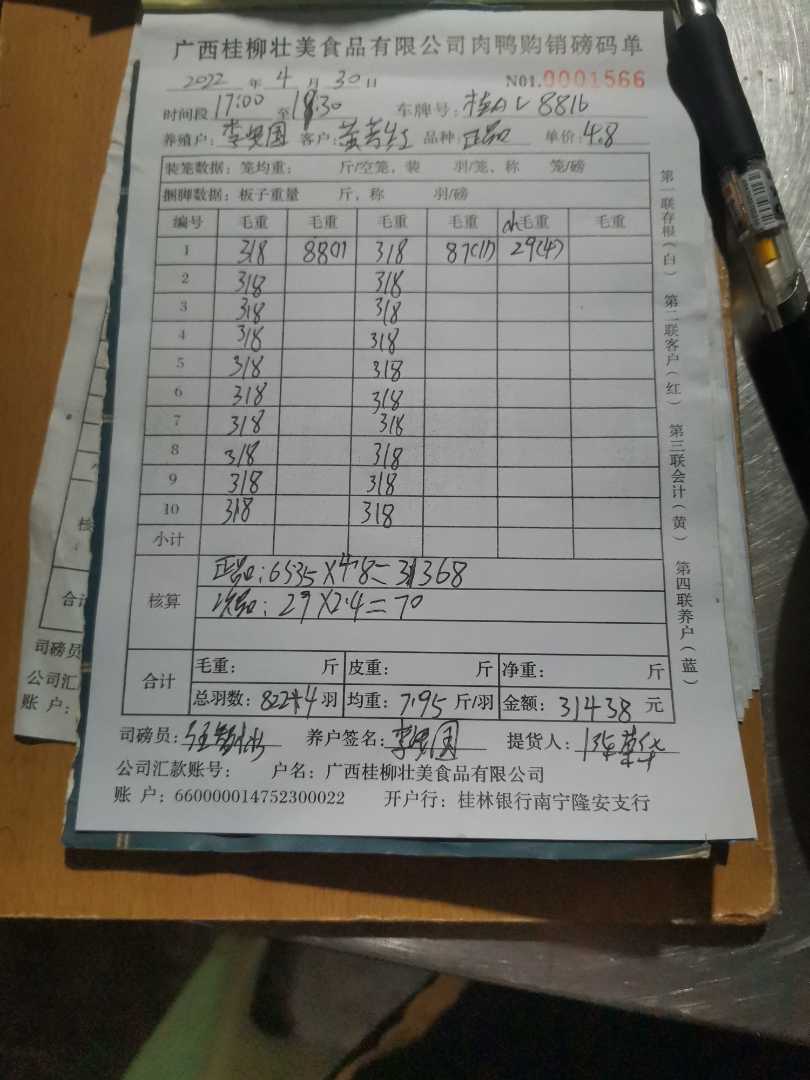 广西桂柳壮美食品有限公司肉鸭购销磅码单
2022 年 4 月 30 日 N01.0001566
时间段 17:00 至 18:30 车牌号: 8816
养殖户: 客户: 品种: 正品 单价: 4.8
装笼数据: 笼均重: 斤/空笼, 装 羽/笼、称 笼/磅
捆脚数据: 板子重量 斤, 称 羽/磅
编号 毛重 毛重 毛重 毛重 毛重 毛重
1 318 88(1) 318 87(11) 29(4)
2 318 318
3 318 318
4 318 318
5 318 318
6 318 318
7 318 318
8 318 318
9 318 318
10 318 318
小计
核算 正品: 6535×4.8=31368
次品: 29×2.4=70
合计 毛重: 斤 皮重: 斤 净重: 斤
总羽数: 822+4 羽 均重: 7.95 斤/羽 金额: 31438 元
司磅员: 养户签名: 提货人:
公司汇款账号: 户名: 广西桂柳壮美食品有限公司
账 户: 660000014752300022 开户行: 桂林银行南宁隆安支行
第一联存根(白) 第二联客户(红) 第三联会计(黄) 第四联养户(蓝)
核
合计
司磅员
公司汇
账 户: